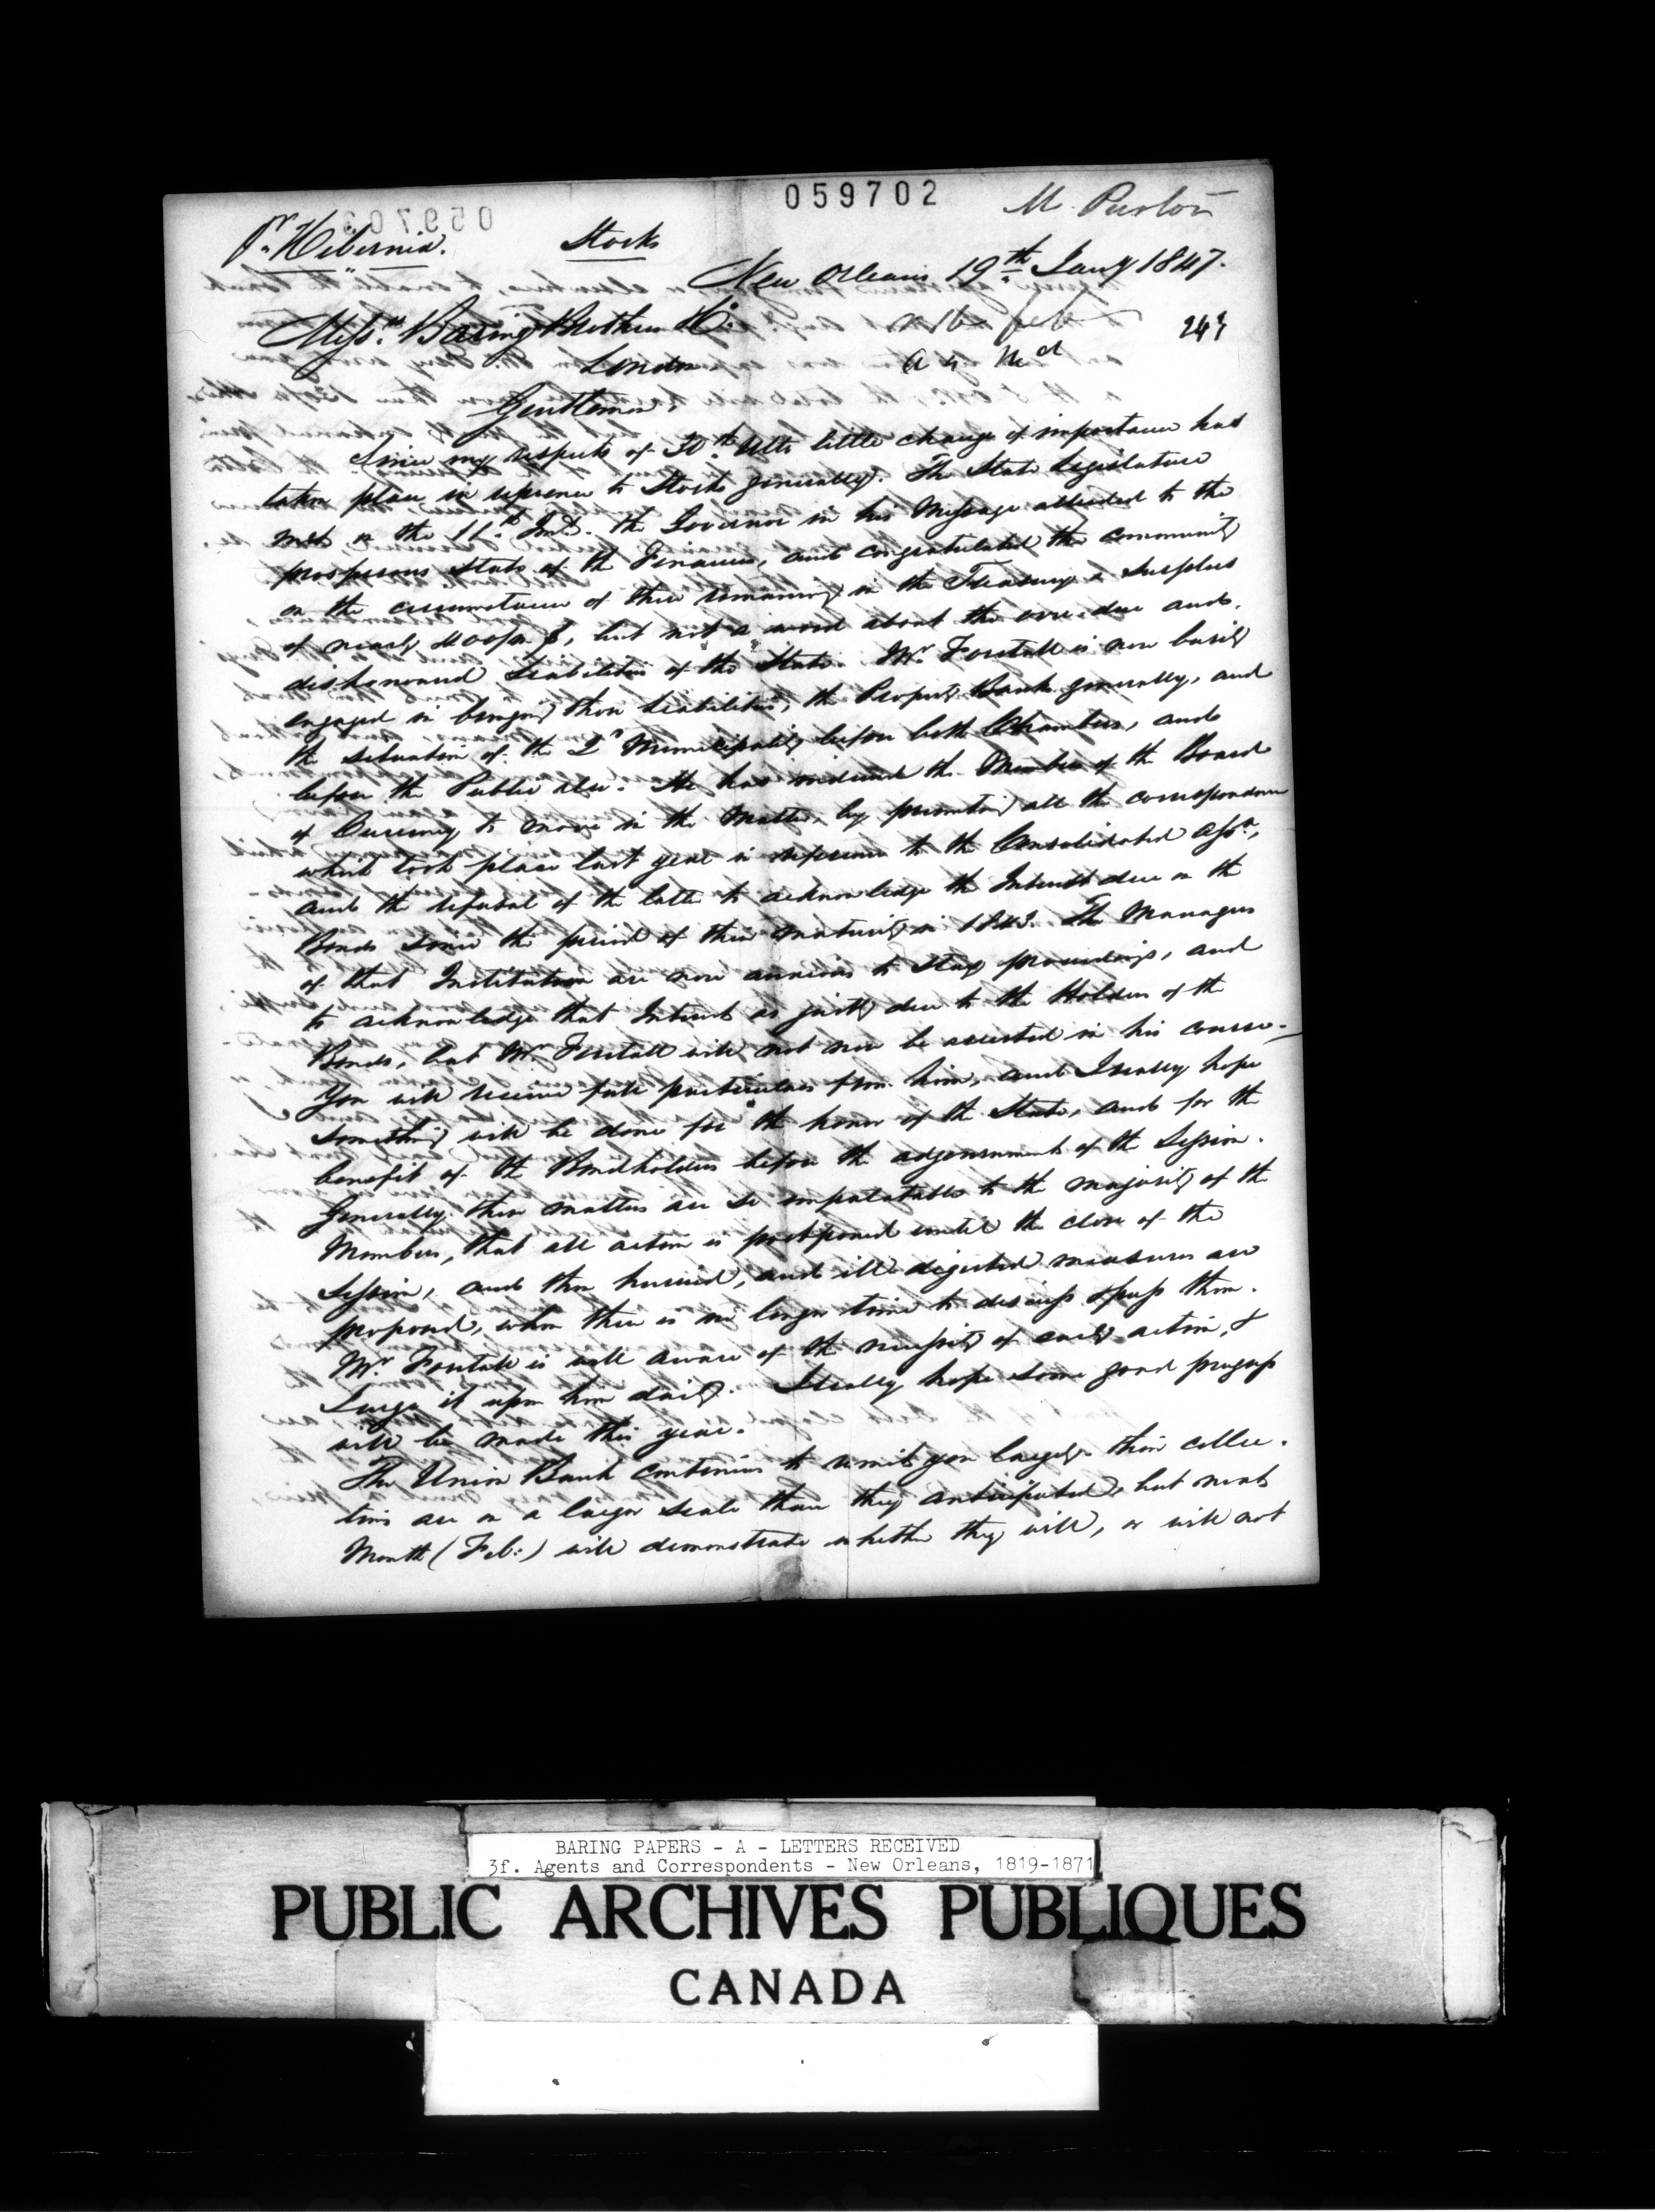 059702
pr Hibernia.
Stocks
New Orleans 19th Jany 1847.
Messrs. Baring Brothers & Co.
London
Gentlemen,
Since my respects of 30th Ulto little change of importance has
taken place in reference to Stocks generally. The State Legislature
met on the 11th Inst. the Governor in his Message alluded to the
prosperous state of the Finances, and congratulated the community
on the circumstance of there remaining in the Treasury a surplus
of nearly $, but not a word about the over-due and
dishonored Liabilities of the State. Mr Forstall is now busily
engaged in bringing these Liabilities, the Property Banks generally, and
the situation of the 2d Municipality before both Chambers, and
before the Public also. He has induced the Members of the Board
of Currency to move in the matter, by presenting all the correspondence
which took place last year in reference to the Consolidated Assn,
and the refusal of the latter to acknowledge the Interest due on the
Bonds since the period of their maturity in 1843. The Managers
of that Institution are now anxious to stay proceedings, and
to acknowledge that Interest as justly due to the Holders of the
Bonds, but Mr Forstall will not now be arrested in his course.
You will receive full particulars from him, and I really hope
something will be done for the honor of the State, and for the
benefit of the Bondholders before the adjournment of the Session.
Generally these matters are so unpalatable to the majority of the
Members, that all action is postponed until the close of the
Session, and then hurried, and ill digested measures are
proposed, when there is no longer time to discuss & pass them.
Mr Forstall is well aware of the necessity of early action, &
I urge it upon him daily. I really hope some good progress
will be made this year.
The Union Bank continues to remit you largely. their collec-
tions are on a larger scale than they anticipated, but next
Month (Feb:) will demonstrate whether they will, or will not
BARING PAPERS - A - LETTERS RECEIVED
3f. Agents and Correspondents - New Orleans, 1819-1871
PUBLIC ARCHIVES PUBLIQUES
CANADA